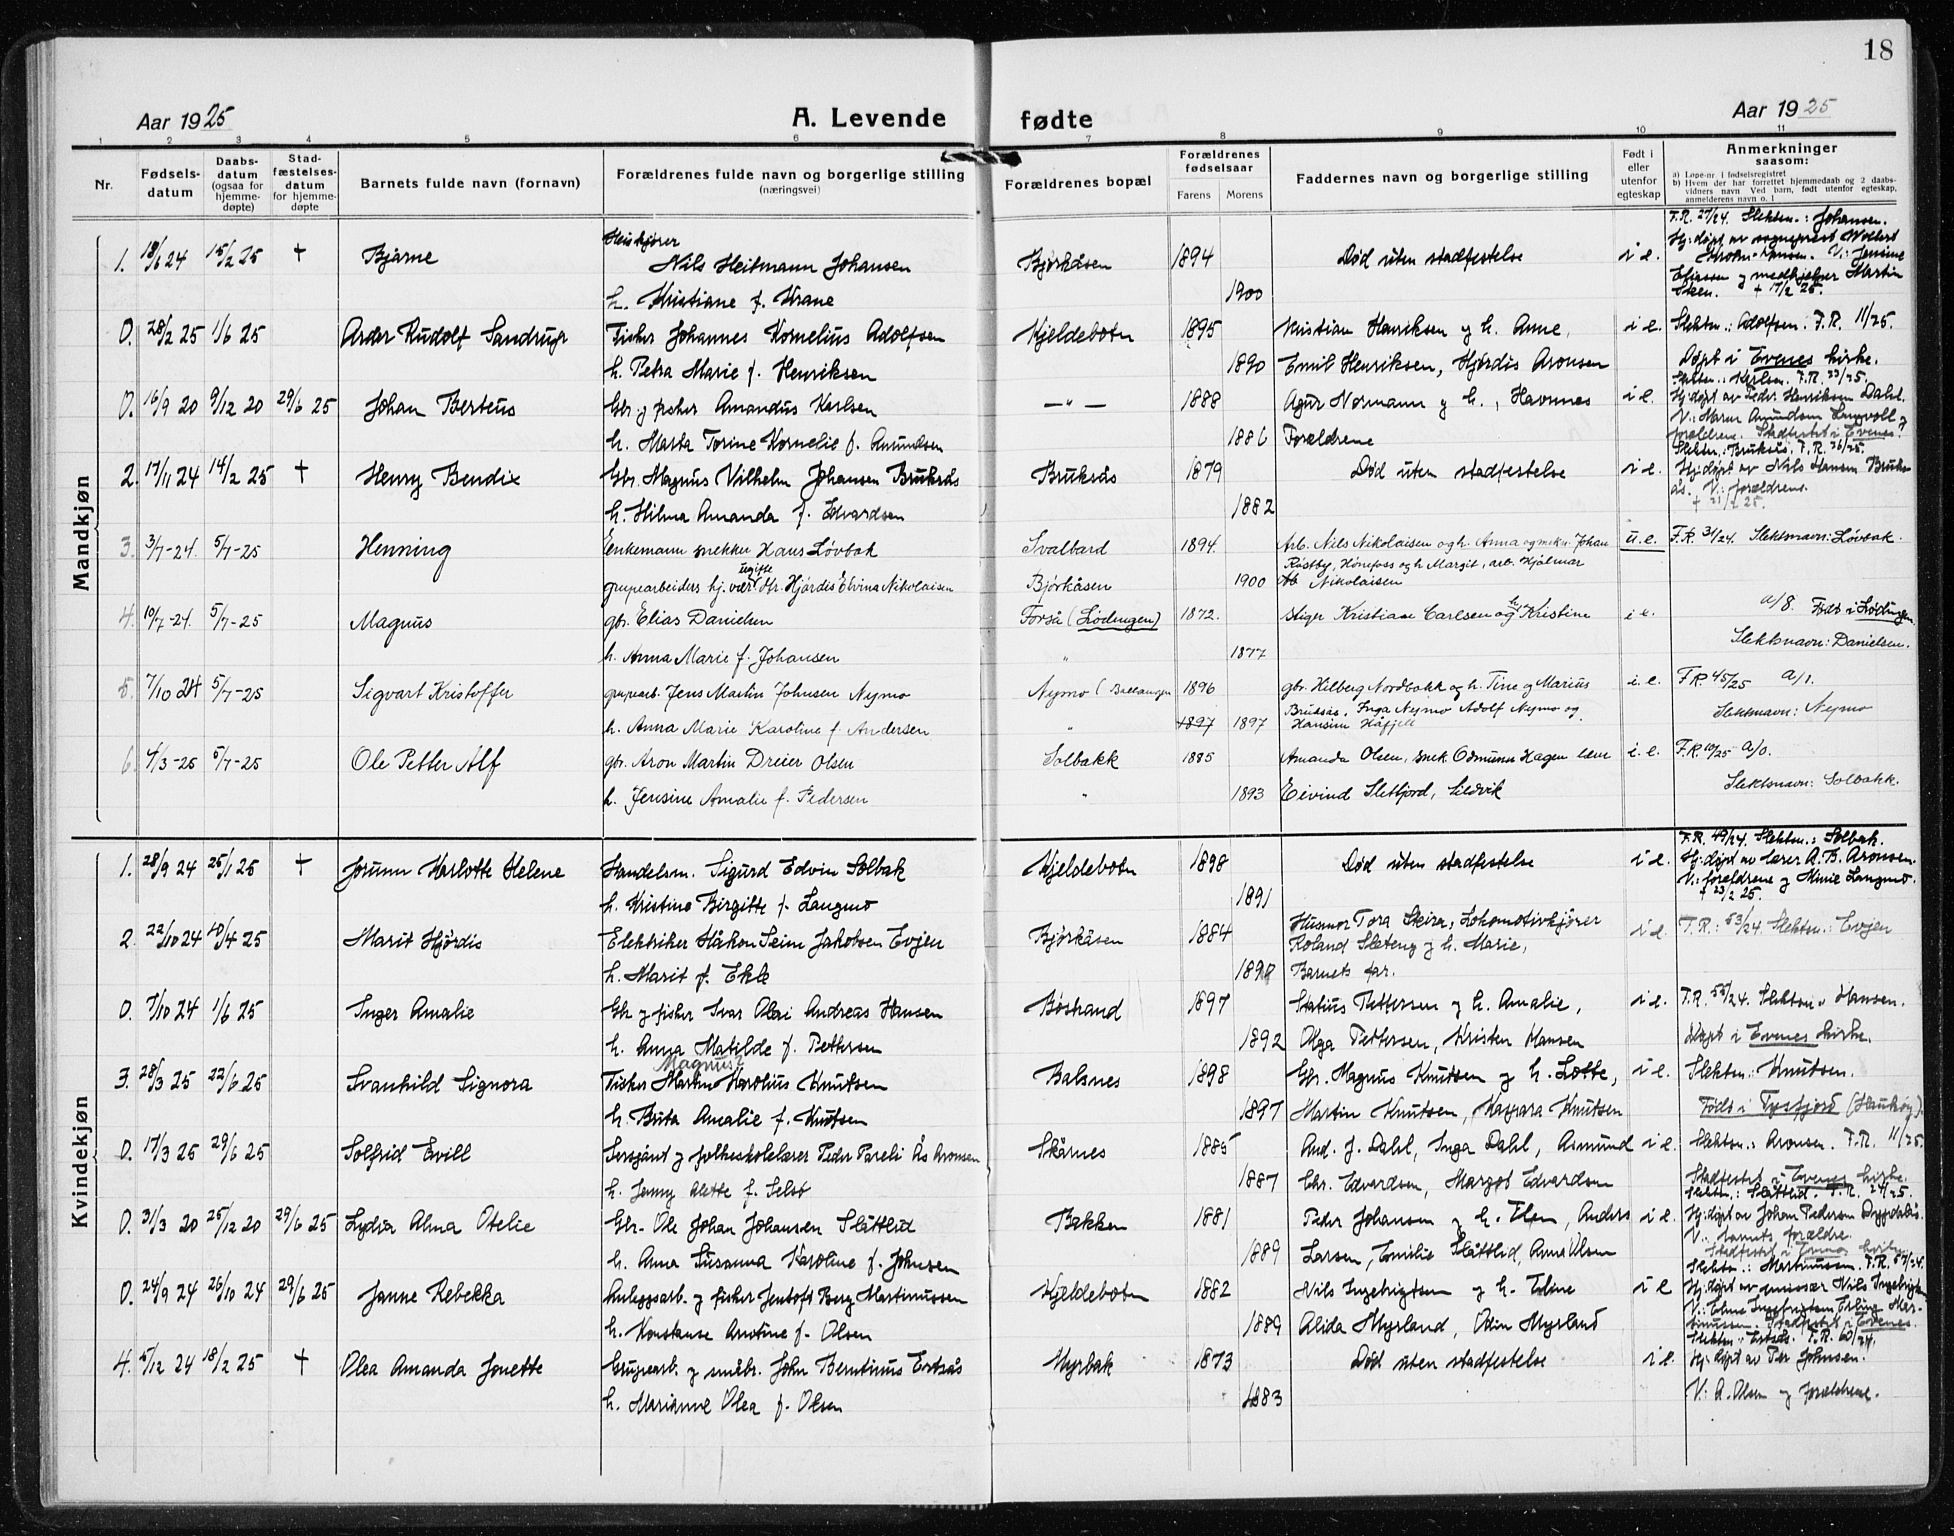 18
Aar 1925
A. Levende
fødte
Aar 1925
1 2 3 4 5 6 7 8 9 10 11
Nr.
Fødselsdatum
Daabsdatum (ogsaa for hjemmedøpte)
Stadfæstelsesdatum for hjemmedøpte
Barnets fulde navn (fornavn)
Forældrenes fulde navn og borgerlige stilling (næringsvei)
Forældrenes bopæl
Forældrenes fødselsaar
Farens Morens
Faddernes navn og borgerlige stilling
Født i eller utenfor egteskap
Anmerkninger saasom:
a) Løpe-nr. i fødselsregistret
b) Hvem der har forrettet hjemmedaab og 2 daabsvidners navn Ved barn, født utenfor egteskap, anmelderens navn o. l
Mandkjøn
F.R. 27/24. Slektsn.: Johansen.
1. 13/6 24 15/2 25 † Bjarne Nils Heitmann Johansen Bjørkåsen 1894 Død uten stadfestelse i e. Hj:døpt av sogneprest
h. Kristiane f. Krane 1900 Eliassen og medhjelper Martin
Sken. † 17/2 25.
0. 28/2 25 1/6 25 Rudolf Fisker Johannes Kornelius Adolfsen Kjeldebotn 1895 Kristian Henriksen og h. Anne, i e. Slektsn.: Adolfsen. F.R. 11/25.
h. Petra Marie f. Henriksen 1890 Emil Henriksen, Hjørdis Aronsen Døpt i Evenes kirke.
Slektsn.: Karlsen. F.R. 23/25.
0. 16/9 20 9/12 20 29/6 25 Johan Berteus Gbr. og fisker Amandus Karlsen — „ — 1888 Agur Normann og h., Havnnes i e. Hj:døpt av Peder Henriksen Dahl.
h. Marta Torine Kornelie f. Amundsen 1886 Forældrene V: Maren Amundsen Langvoll og
forældrene. Stadfestet i Evenes.
Slektsn.: Bruksås. F.R. 36/25.
2. 17/11 24 14/2 25 † Henry Bendix Gbr. Magnus Vilhelm Johansen Bruksås Bruksås 1879 Død uten stadfestelse i e. Hj:døpt av Nils Hansen Bruks-
h. Hilma Amanda f. Edvardsen 1882 ås. V: forældrene.
3. 3/7-24. 5/7-25 Henning Enkemann snekker Hans Løvbak Svalbard 1894. Arb. Nils Nikolaisen og h. Anna og snekr. Johan u.e. F.R. 31/24. Slektsnavn: Løvbak.
ugifte
grupearbeiders hj. vær. dtr. Hjørdis Elvina Nikolaisen Bjørkåsen 1900 Røstby, Hønefoss og h. Margit, arb. Hjalmar
Nikolaisen
4. 10/7-24. 5/7-25 Magnus gbr. Elias Danielsen Forså (Lødingen) 1872. Stiger Kristian Carlsen og h. Kristine i e. a/8. Født i Lødingen.
h. Anna Marie f. Johansen „ 1877 Slektsnavn: Danielsen.
5. 7/10 24 5/7-25 Sigvart Kristoffer grupearb. Jens Martin Johnsen Nymo Nymo (Ballangen 1896 gbr. Hilberg Nordbakk og h. Tine og Marius i.e. F.R. 45/25 a/1.
h. Anna Marie Karoline f. Andersen „ 1897 1897 Bruksås. Inga Nymo Adolf Nymo og Slektsnavn: Nymo
Hansine Håfjell
6. 4/3-25 5/7-25 Ole Petter Alf gbr. Aron Martin Dreier Olsen Solbakk 1885 Amanda Olsen, snek. Odmunn Hagen i. e. F.R. 10/25 a/0.
h. Jensine Amalie f. Pedersen „ 1893 Eivind Sletfjord, Lidvik Slektsnavn: Solbakk.
Kvindekjøn
F.R. 49/24. Slektsn.: Solbak.
1. 28/9 24 25/1 25 † Jorunn Karlotte Helene Handelsm. Sigurd Edvin Solbak Kjeldebotn 1898 Død uten stadfestelse i e. Hj:døpt av lærer A. B. Aronsen.
h. Kristine Birgitte f. Langmo 1891 V: forældrene og Minie Langmo.
† 23/2 25.
2. 22/10 24 10/4 25 Marit Hjørdis Elektriker Håkon Seim Jakobsen Evjen Bjørkåsen 1884 Husmor Tora Skeira, Lokomotivkjører i e. F.R.: 53/24. Slektsn.: Evjen
h. Marit f. Ekle Roland Sleteng og h. Marie,
Barnets far.
0. 7/10 24 1/6 25 Inger Amalie Gbr. og fisker Ivar Olai Andreas Hansen Bøstrand 1897 Statius Pettersen og h. Amalie, i e. F.R. 55/24. Slektsn.: Hansen.
h. Anna Matilde f. Pettersen 1892 Olga Pettersen, Kristen Hansen Døpt i Evenes kirke.
Magnus?
3. 28/3 25 22/6 25 Svanhild Signora Fisker Martin Karolius Knutsen Balsnes 1898 Gbr. Magnus Knutsen og h. Lotte, i e. Slektsn.: Knutsen.
h. Brita Amalie f. Knutsen 1897 Martin Knutsen, Ragnara Knutsen Født i Tysfjord (Haukøy).
0. 17/3 25 29/6 25 Solfrid Evill og folkeskolelærer Peder Pareli Ås Aronsen Skårnes 1885 And. J. Dahl, Inga Dahl, Asmund i e. Slektsn.: Aronsen. F.R. 11/25.
h. Jenny Alette f. Selsø 1887 Chr. Edvardsen, Margot Edvardsen Stadfestet i Evenes kirke.
Slektsn.: Slåttlid. F.R. 24/25.
0. 31/3 20 25/12 20 29/6 25 Lydia Alma Otelie Gbr. Ole Johan Johansen Slåttlid Bakken 1881 Peder Johansen og h. Elen, Anders i e. Hj:døpt av Johan Pedersen
h. Anna Susanna Karoline f. Johnsen 1889 Larsen, Emilie Slåttlid, Anna Olsen V: barnets forældre.
Stadfestet i Evenes kirke
Slektsn.: Martinussen. F.R. 57/24.
0. 24/9 24 26/10 24 29/6 25 Janne Rebekka Anleggsarb. og fisker Jentoft Berg Martinussen Kjeldebotn 1882 Nils Ingebrigtsen og h. Edine i e Hj:døpt av emissær Nils Ingebrigtsen
h. Konstanse Arntine f. Olsen 1889 Alida Myrland, Odin Myrland V: Edine Ingebrigtsen, Erling Mar-
tinussen. Stadfestet i Evenes.
Slektsn.: Ertsås. F.R. 60/24.
4. 5/12 24 18/2 25 † Olea Amanda Jonette Grupearb. og småbr. John Berntinus Ertsås Myrbak 1873 Død uten stadfestelse i e. Hj:døpt av Per Johnsen.
h. Marianne Olea f. Olsen 1883 V: A. Olsen og forældrene.